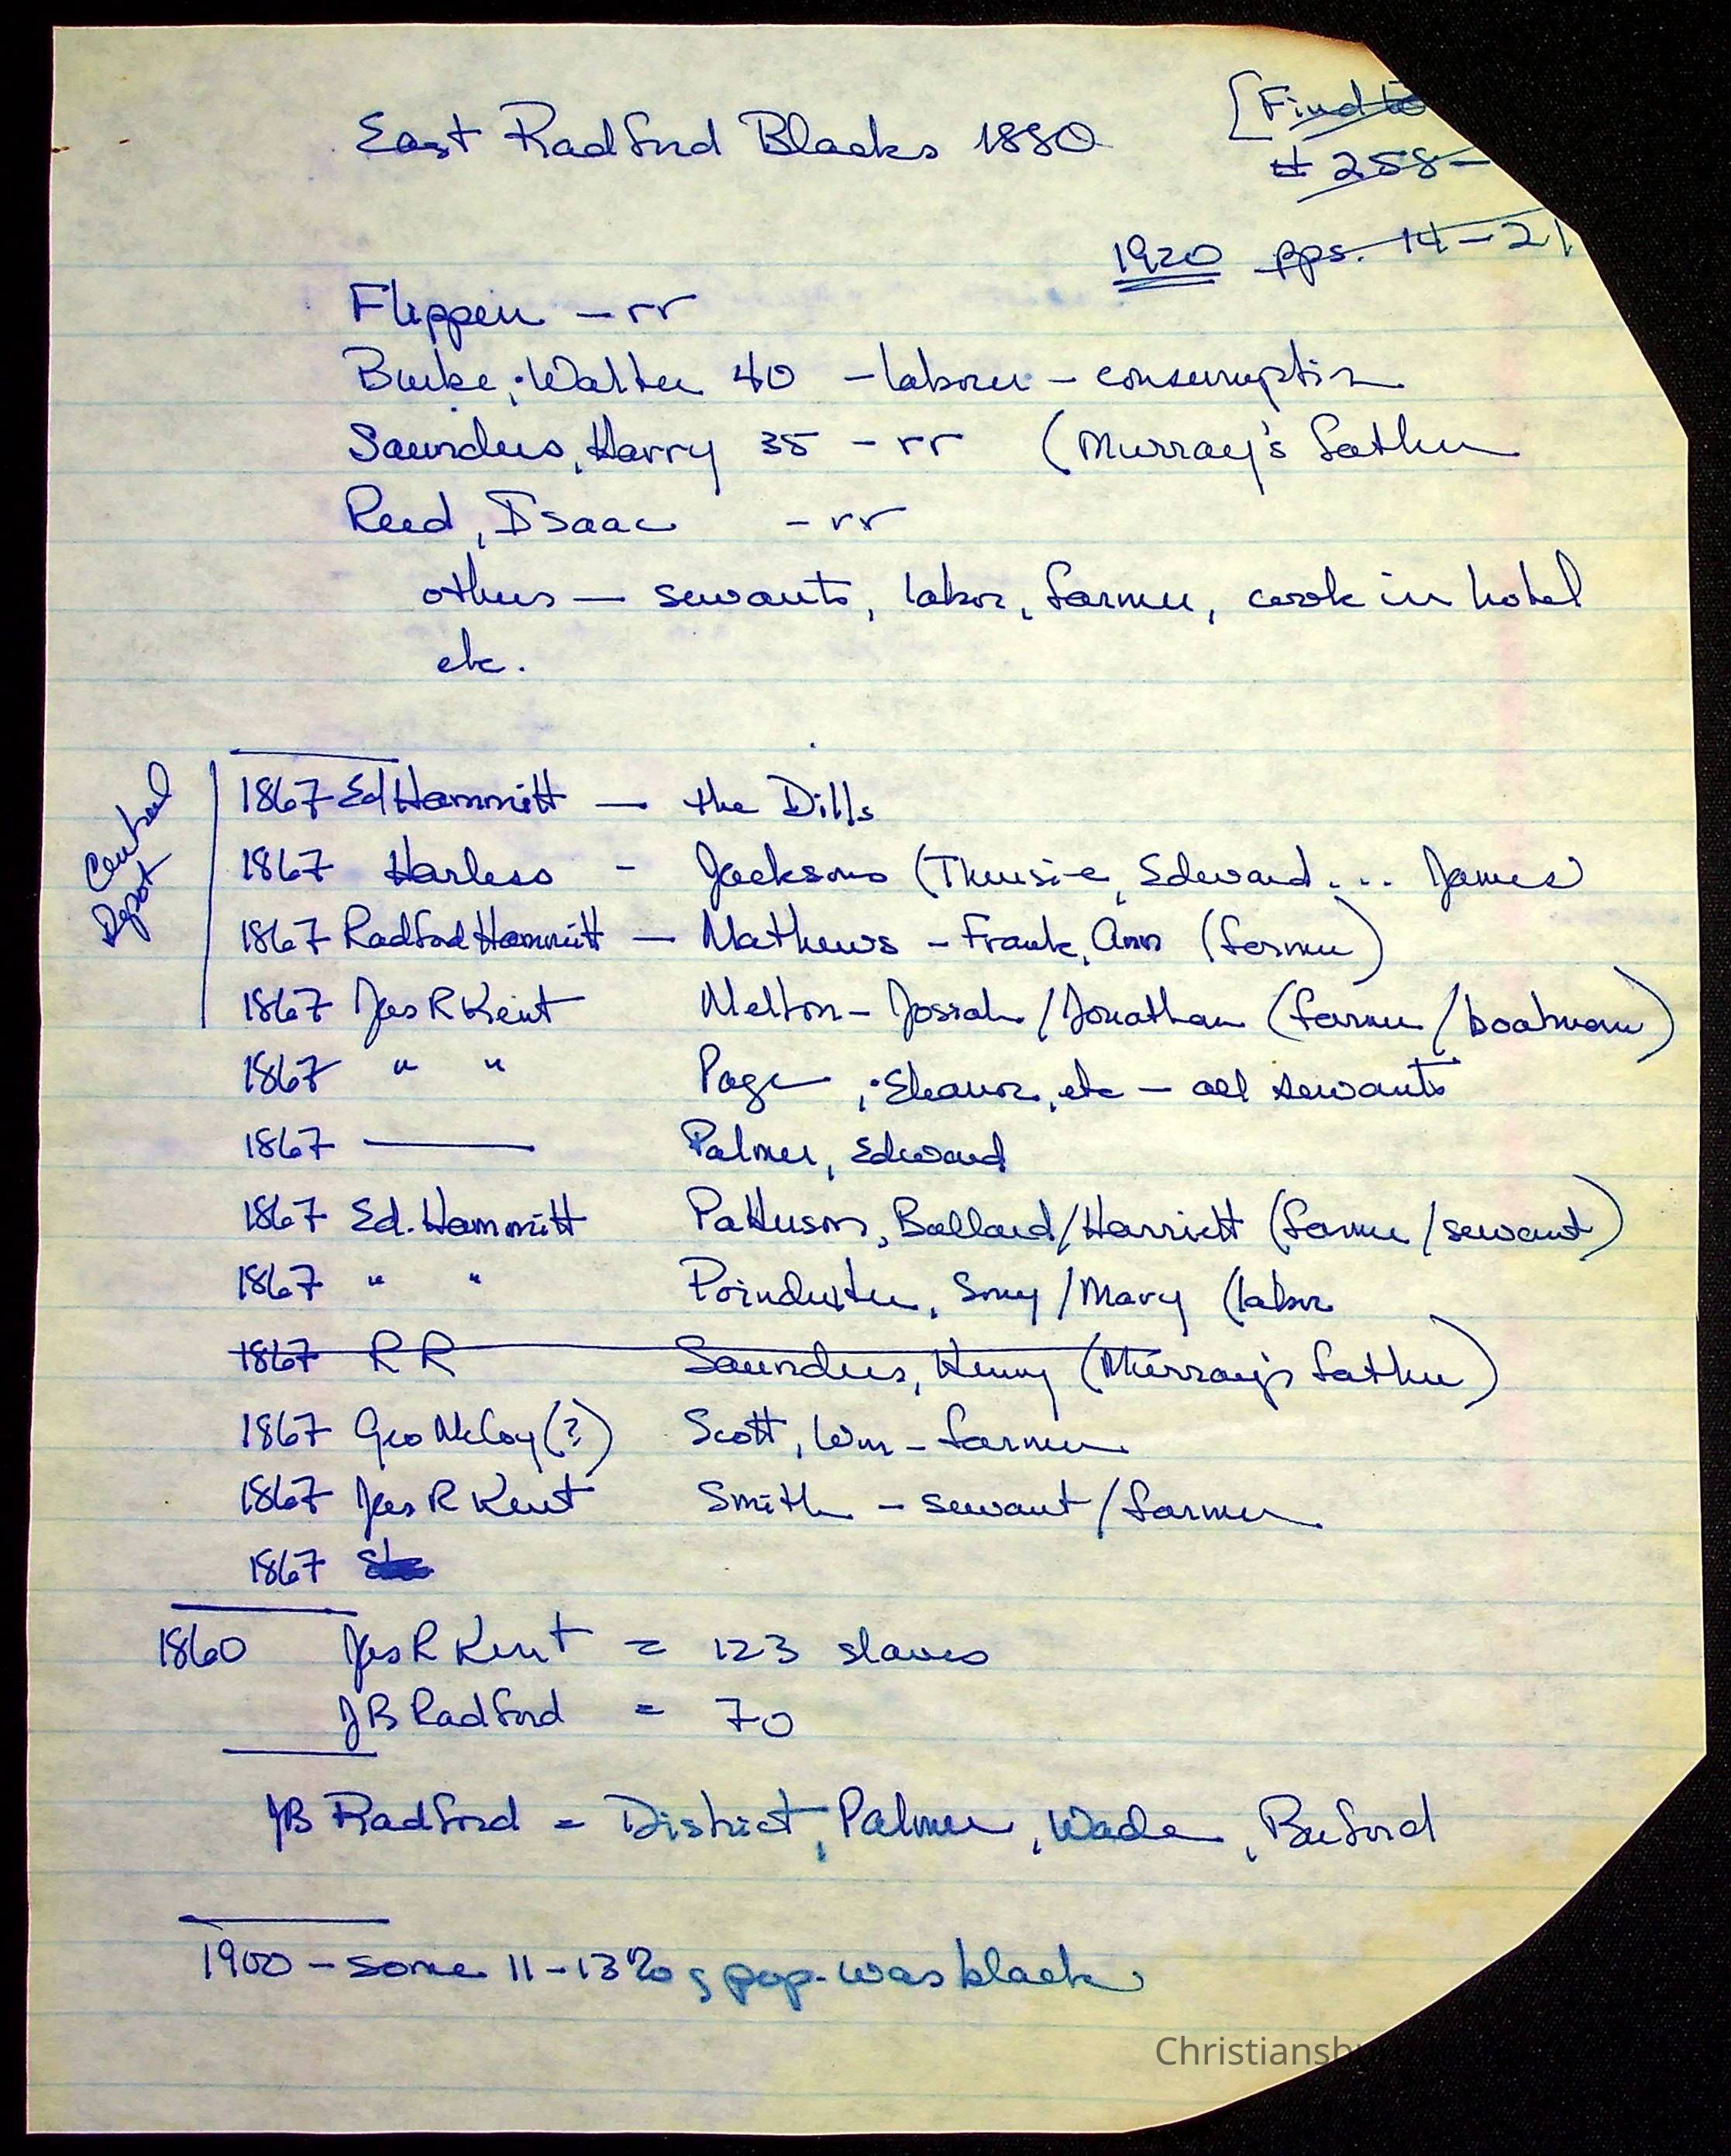 East Radford Blacks 1880
[Find to
# 258-
1920 pps. 14-21
Flippen - rr
Burke, Walter 40 - laborer - consumption
Saunders, Harry 35 - rr (Murray's father
Reed, Isaac - rr
others - servants, labor, farmer, cook in hotel
etc.
Central
Depot
1867 Ed Hammitt - the Dills
1867 Harless - Jacksons (Thursie, Edward... James
1867 Radford Hammitt - Mathews - Frank, Ann (farmer)
1867 Jas R Kent Melton - Josiah/Jonathan (farmer/boatman)
1867 " " Page, Eleanor, etc - all servants
1867 — Palmer, Edward
1867 Ed. Hammitt Patterson, Ballard/Harriett (farmer/servant)
1867 " " Poindexter, Sony/Mary (labor
1867 RR Saunders, Henry (Murray's father)
1867 Geo McCoy (?) Scott, Wm - farmer
1867 Jas R Kent Smith - servant/farmer
1867
1860 Jas R Kent = 123 slaves
JB Radford = 70
JB Radford = District, Palmer, Wade, Buford
1900 - some 11-13% of pop. was black
Christiansb